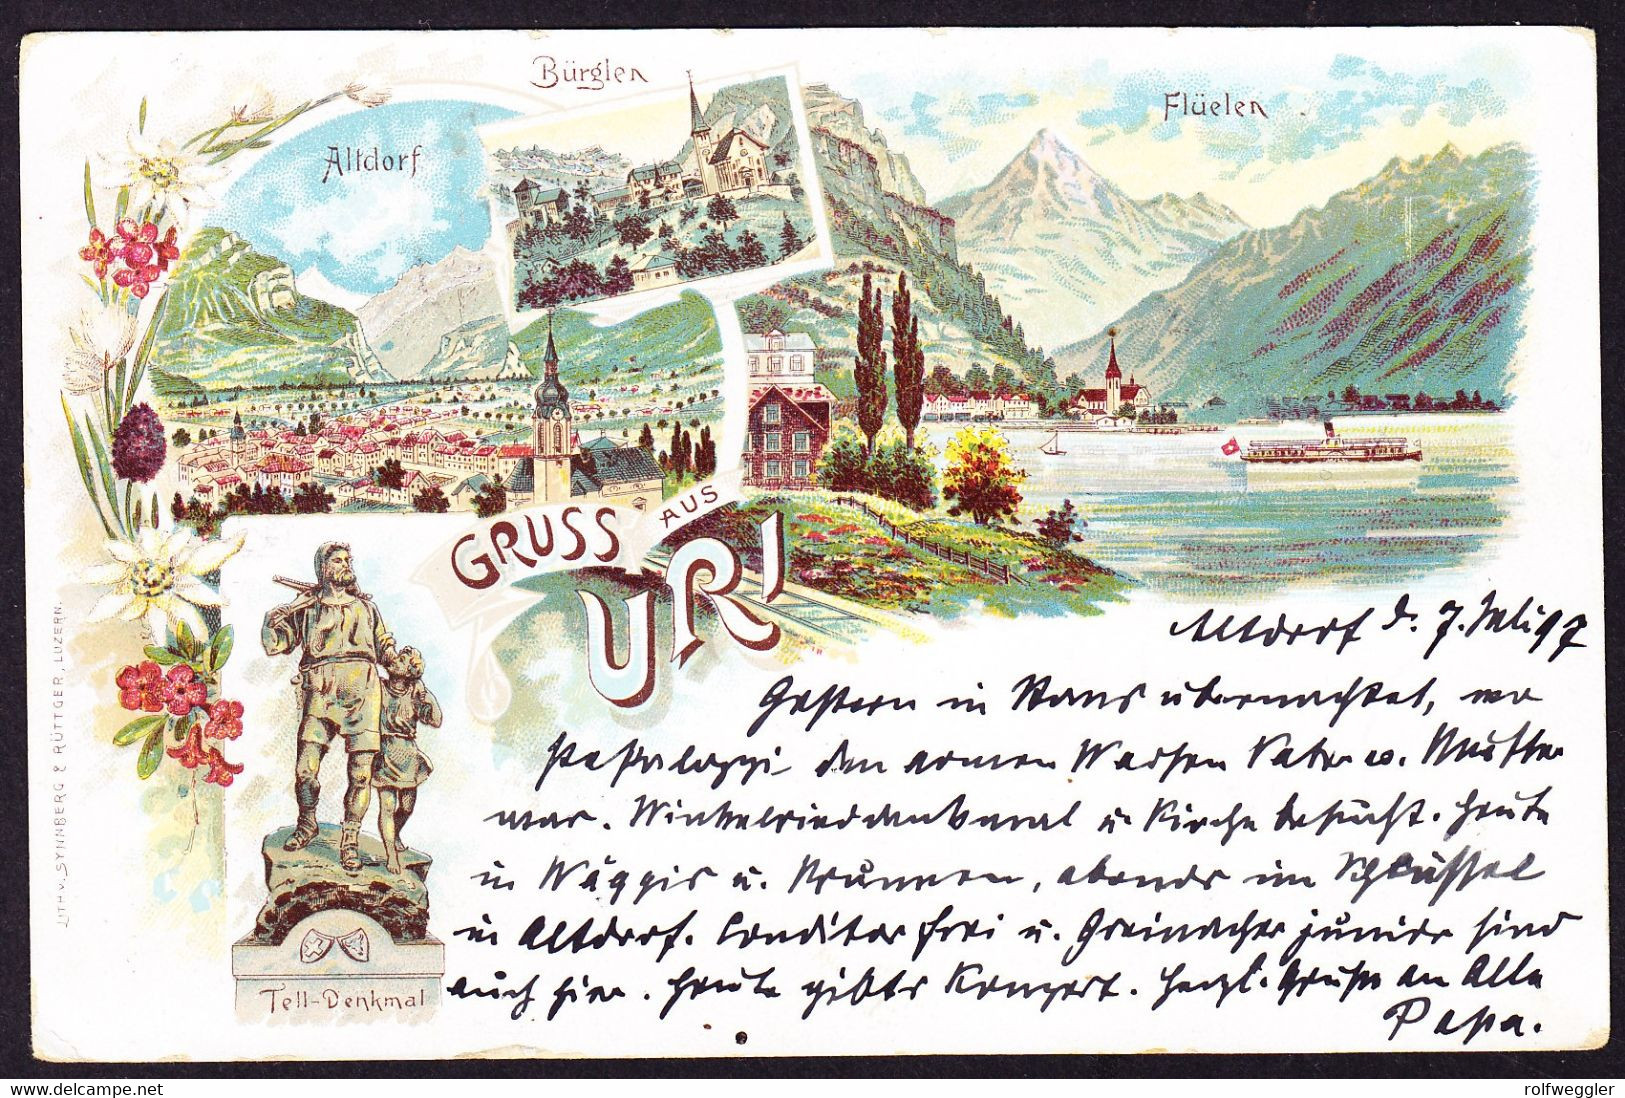 Bürglen
Flüelen
Altdorf
GRUSS AUS
URI
Tell-Denkmal
LITH. V. SYNNBERG & RÜTTGER, LUZERN.
Altdorf d. 7. Juli 97
Gestern in Stans übernachtet, wo
Pestalozzi den armen Waisen Vater u. Mutter
war. Winkelrieddenkmal u. Kirche besucht. Heute
in Wäggis u. Brunnen, abends im Schlüssel
in Altdorf. Conditor Frei u. Greinacher junior sind
auch hier. Heute gibts Konzert. Herzl. Gruss an Alle
Papa.
rolfweggler